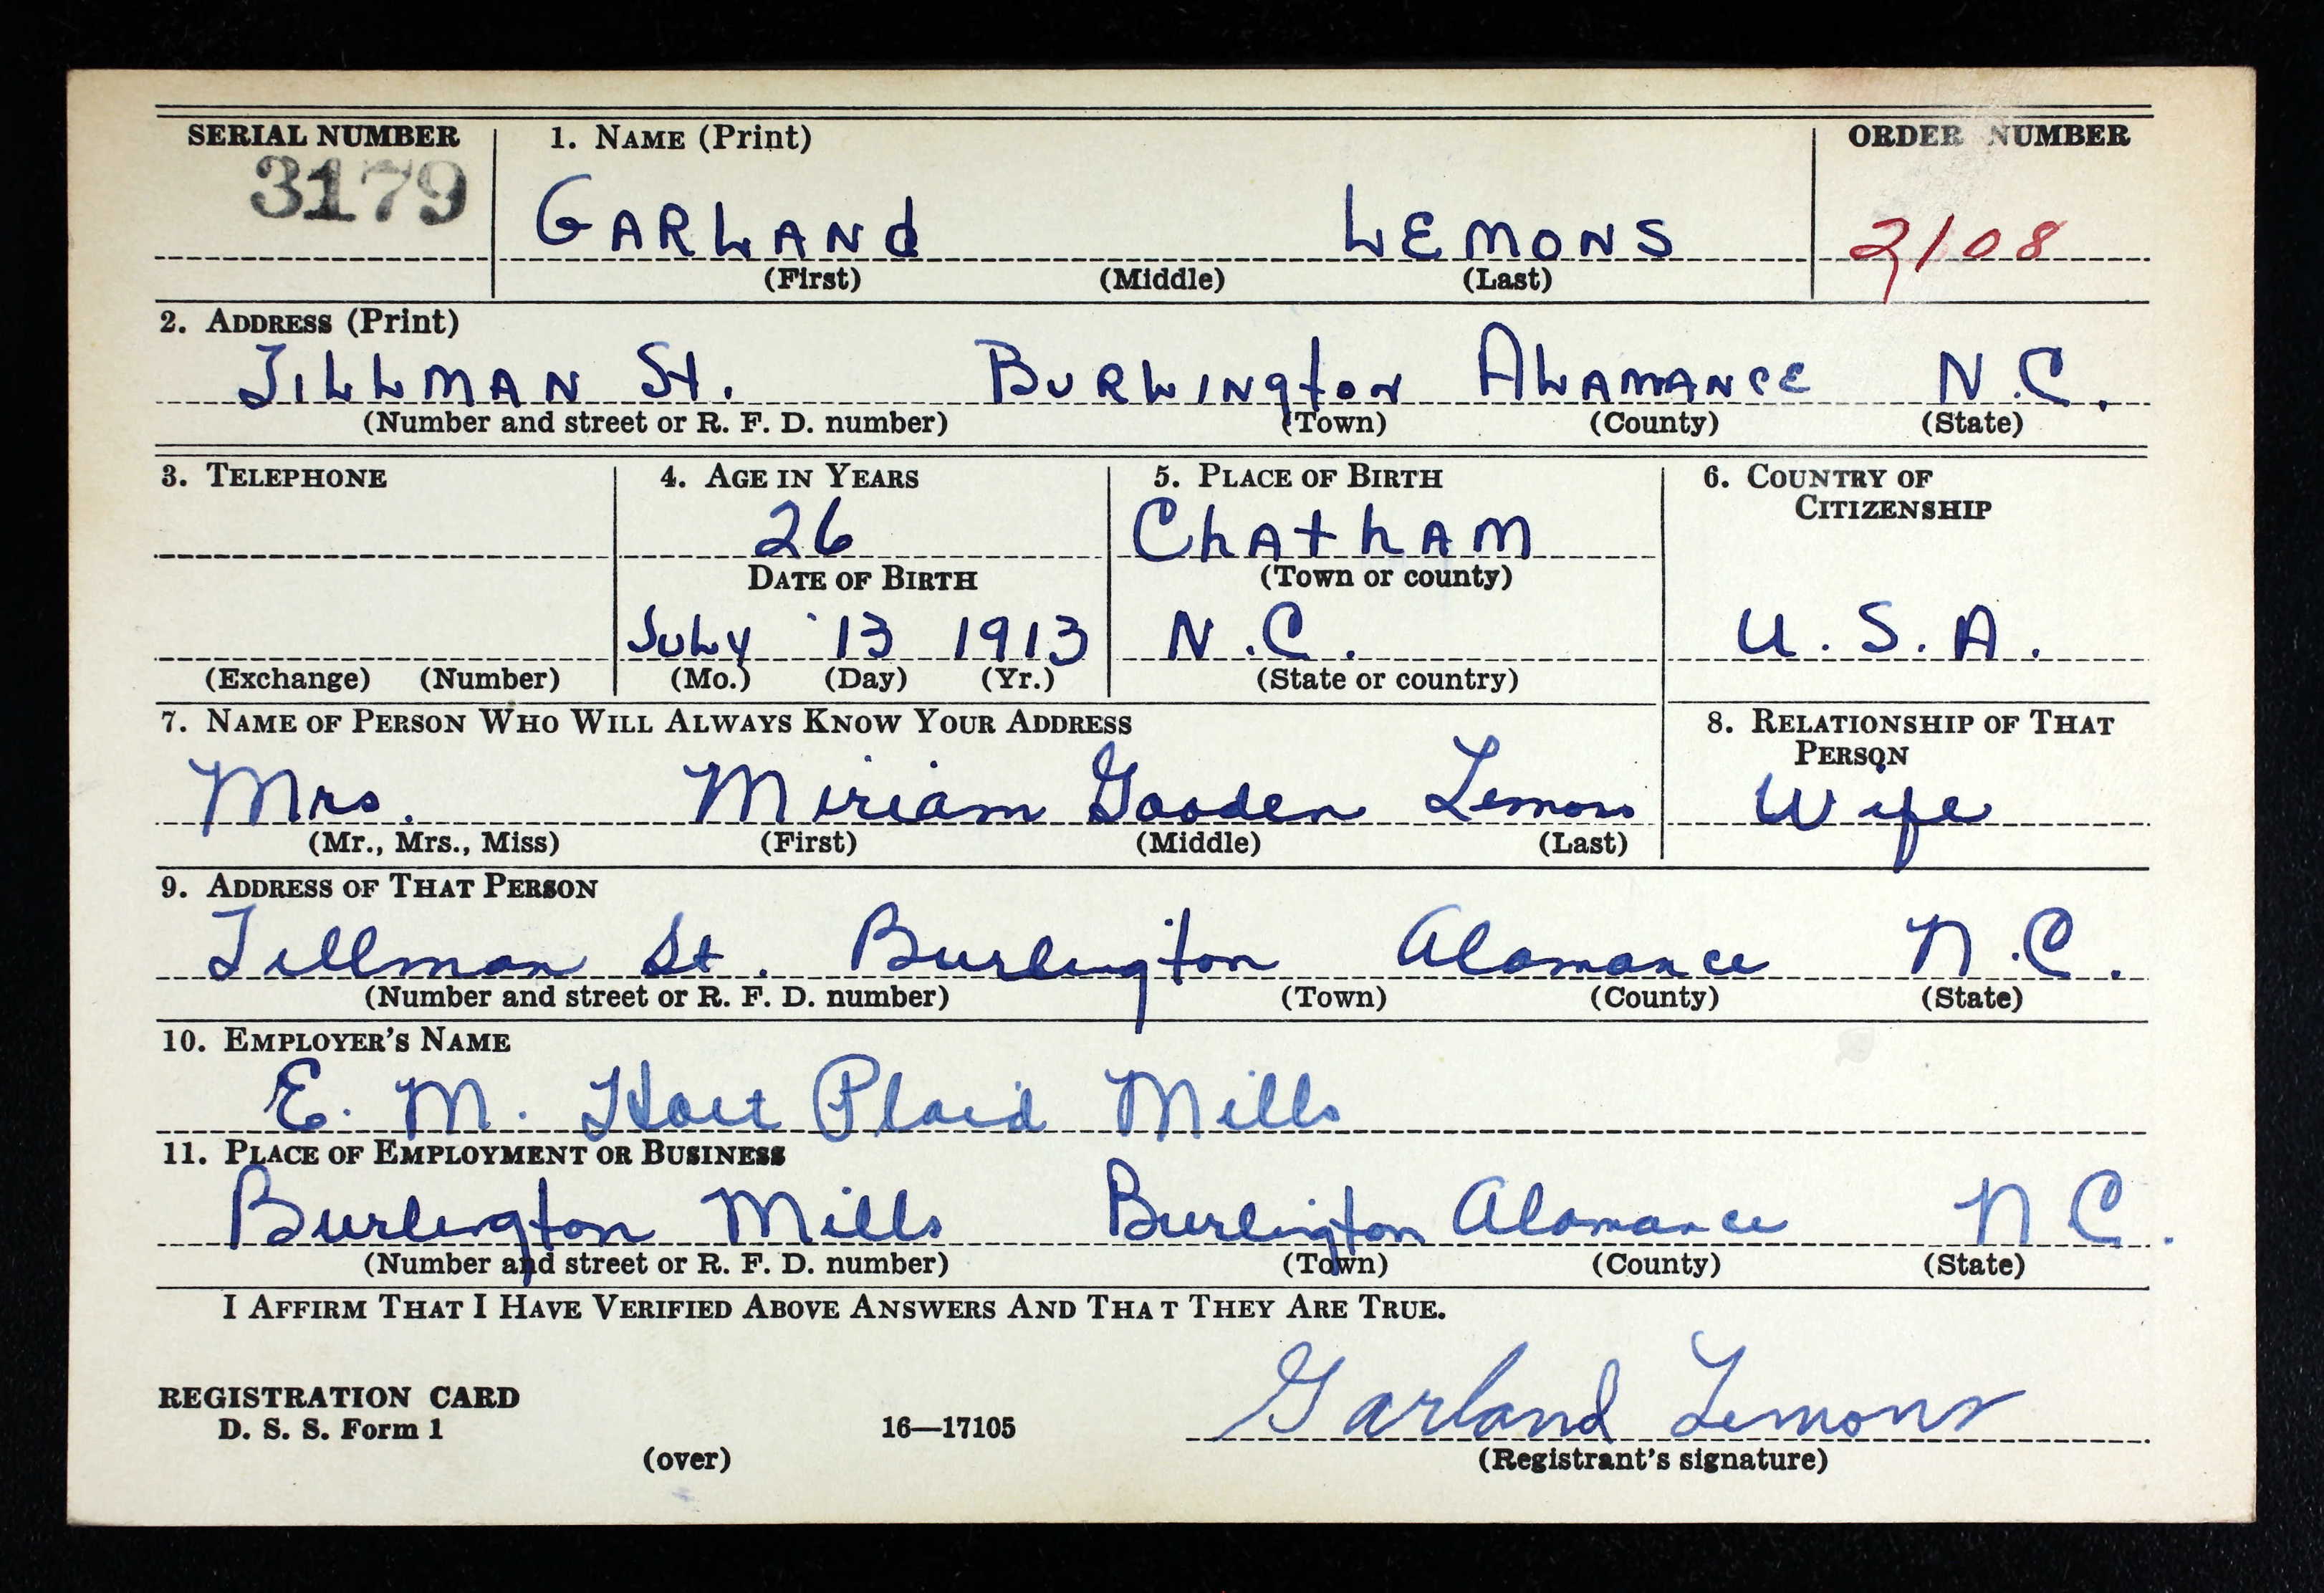 SERIAL NUMBER 1. NAME (Print) ORDER NUMBER
3179 GARLANd LEMONS 2108
(First) (Middle) (Last)
2. ADDRESS (Print)
TILLMAN St. BURLINgton ALAMANCE N.C.
(Number and street or R. F. D. number) (Town) (County) (State)
3. TELEPHONE 4. AGE IN YEARS 5. PLACE OF BIRTH 6. COUNTRY OF CITIZENSHIP
26 ChAthAM
DATE OF BIRTH (Town or county)
JULY 13 1913 N.C. U.S.A.
(Exchange) (Number) (Mo.) (Day) (Yr.) (State or country)
7. NAME OF PERSON WHO WILL ALWAYS KNOW YOUR ADDRESS 8. RELATIONSHIP OF THAT PERSON
Mrs. Miriam Gooden Lemons Wife
(Mr., Mrs., Miss) (First) (Middle) (Last)
9. ADDRESS OF THAT PERSON
Tillman St. Burlington Alamance N.C.
(Number and street or R. F. D. number) (Town) (County) (State)
10. EMPLOYER'S NAME
E. M. Holt Plaid Mills
11. PLACE OF EMPLOYMENT OR BUSINESS
Burlington Mills Burlington Alamance N C.
(Number and street or R. F. D. number) (Town) (County) (State)
I AFFIRM THAT I HAVE VERIFIED ABOVE ANSWERS AND THAT THEY ARE TRUE.
Garland Lemons
REGISTRATION CARD
D. S. S. Form 1 16—17105
(over) (Registrant's signature)